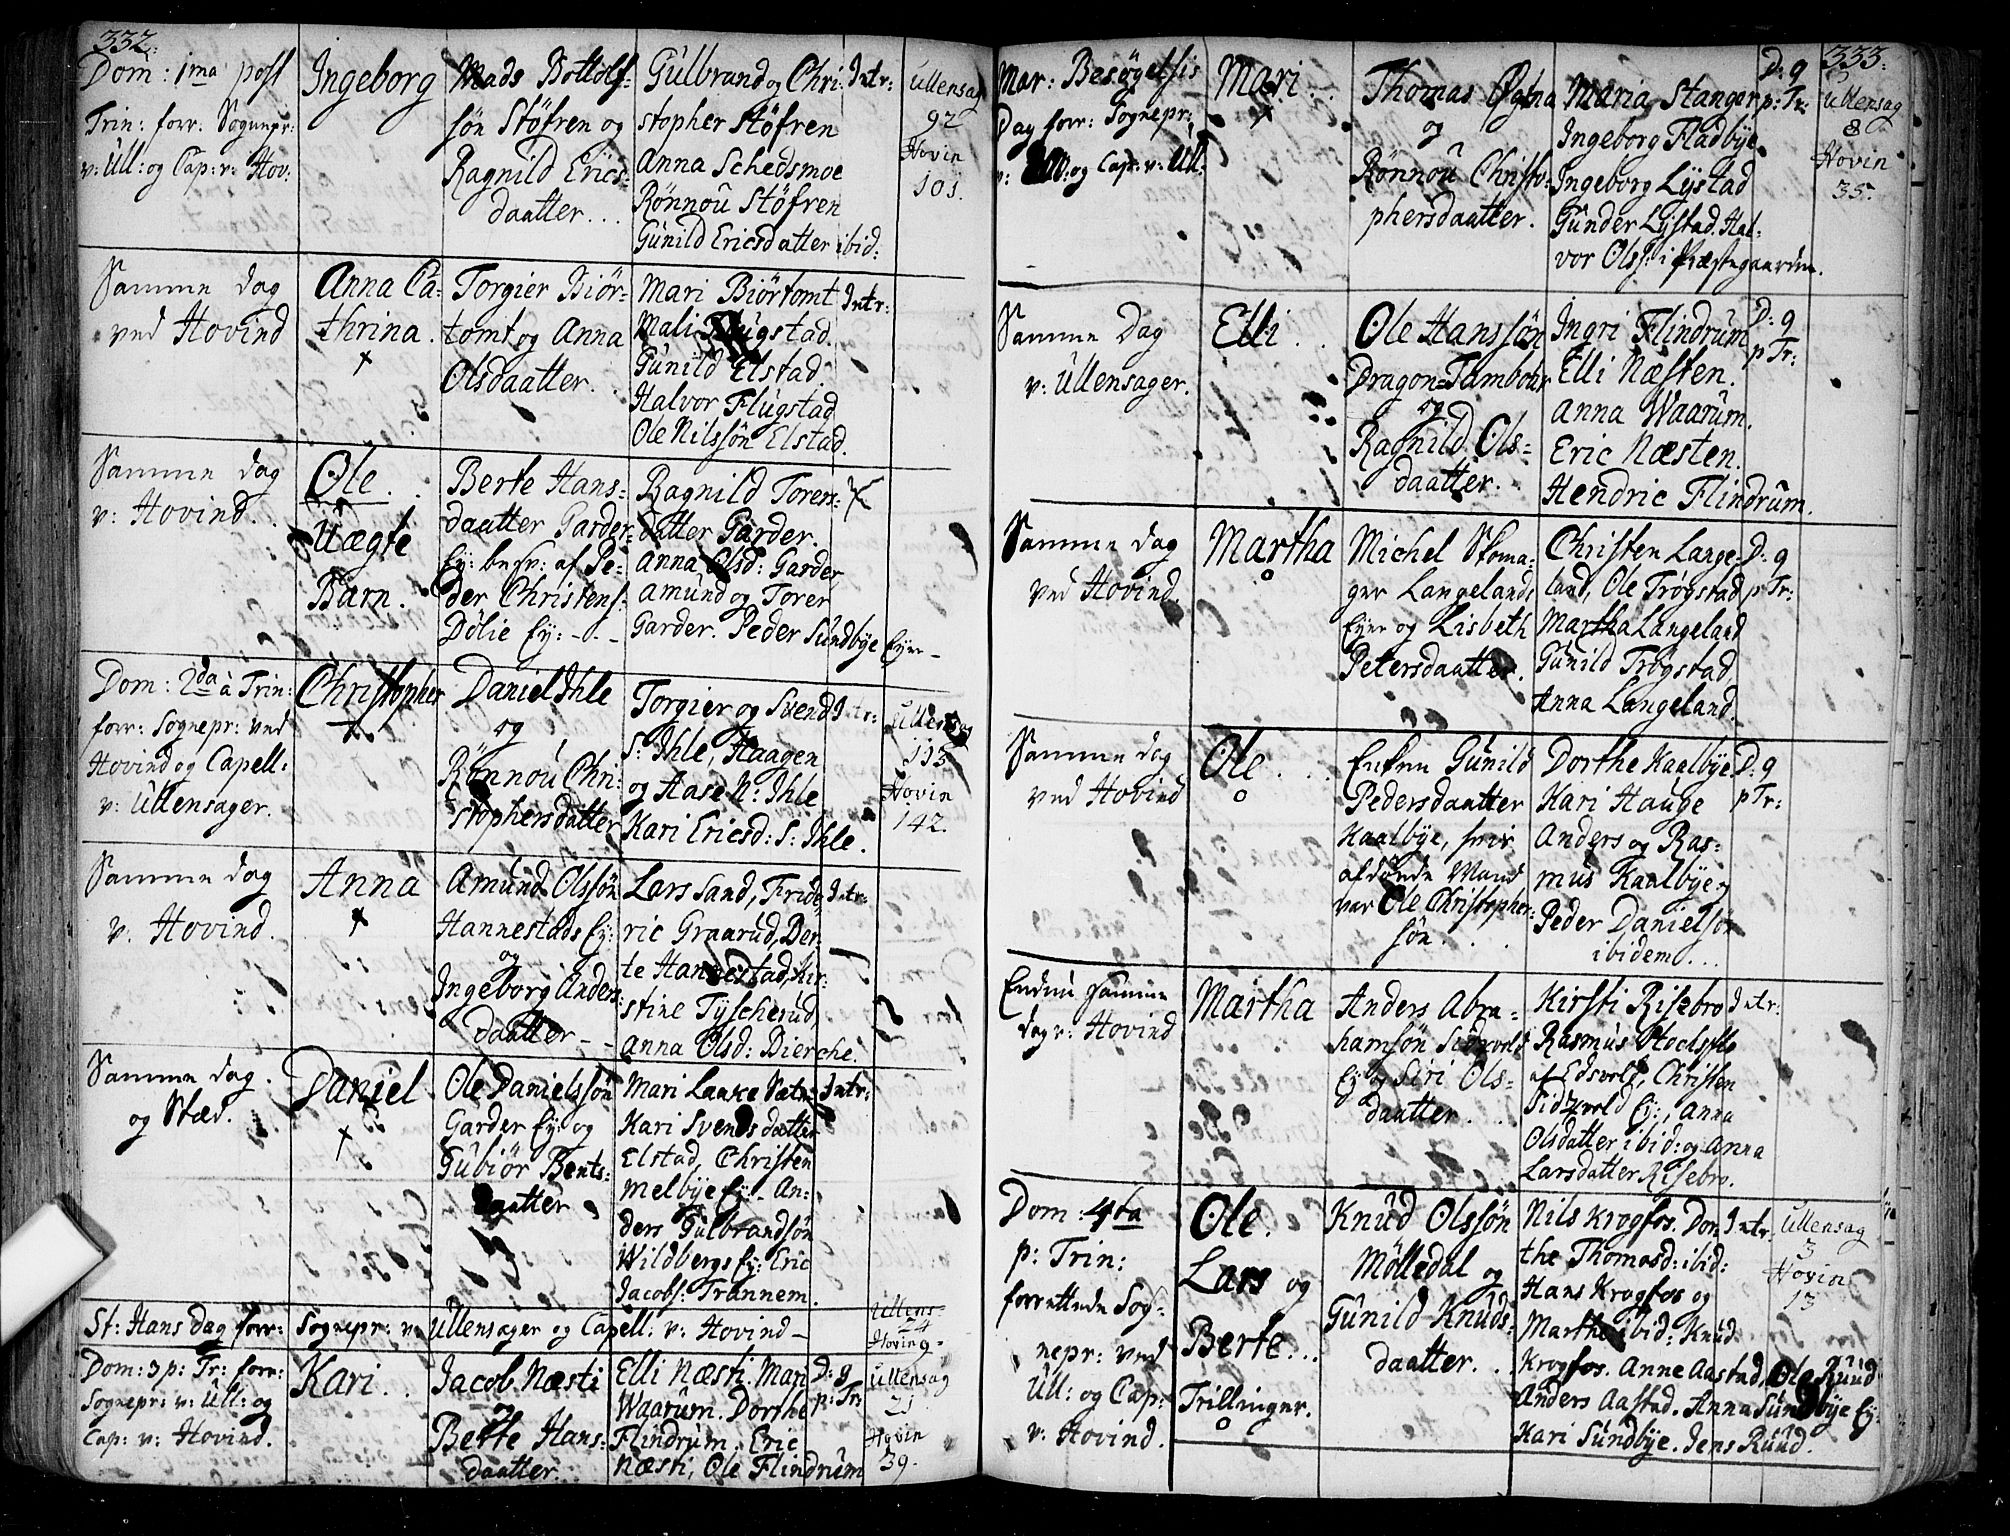 332.
Dom: 1ma post
Trin: forr: Sognepr:
v: Ull: og Cap: v: Hov:
Ingeborg
Mads Bottolf-
søn Støfren og
Ragnild Erics-
daatter...
Gulbrand og Chri-
stopher Støfren
Anna Schedsmoe
Rönnou Støfren
Gunild Ericsdatter ibid:
Intr:
Ullensag
92
Hovin
101.
Samme dag
ved Hovind
Anna Ca-
thrina.
Torgier Biör-
tomt og Anna
Olsdaatter.
Mari Biörtomt
Mali Flugstad.
Gunild Elstad
Halvor Flugstad
Ole Nilssøn Elstad.
Intr:
Samme dag
v: Hovind.
Ole.
Uægte
Barn.
Berte Hans-
daatter Garder-
Ey: besv: af Pe-
der Christens:
Dölie Ey:
Ragnild Tores-
datter Garder.
Anna Olsd: Garder
Amund og Torer
Garder. Peder Sundbye Eyer
Dom: 2da à Trin:
forr: Sognepr: ved
Hovind og Capell:
v: Ullensager.
Christopher
Daniel Ihle
og
Rönnou Chri-
stophersdatter
Torgier og Svend
S: Ihle, Haagen
og Aase N: Ihle
Kari Ericsd: S: Ihle.
Intr:
Ullensag
113
Hovin
142.
Samme dag
v. Hovind.
Anna
Amund Olssøn
Hannestads Ey:
og
Ingeborg Anders-
daatter
Lars Sand, Fride-
ric Graarud, Ber-
te Hannestad, Kir-
stine Tyscherud,
Anna Olsd: Bierche.
Intr:
Samme dag
og Stæd.
Daniel
Ole Danielssøn
Garder Ey: og
Gubiör Bents-
daatter
Mari Laake Sætr:
Kari Svendsdatter
Elstad, Christen
Melbye Ey: An-
ders Gulbrandsøn
Wildbergs Ey: Eric
Jacobs: Trannem.
Intr:
St: Hans Dag forr: Sognepr: v: Ullensager og Capell: v: Hovind
Ullens:
24
Hovin 9.
Dom: 3 p: Tr: forr:
Sognepr: v: Ull: og
Cap: v: Hovind.
Kari.
Jacob Næsti
og
Berte Hans-
daatter
Elli Næsti. Mari
Waarum. Dorthe
Flindrum. Eric
Næsti, Ole Flindrum
D: 9
p: Tr:
Ullensag
21
Hovin
39.
333.
Mar: Besøgelsis
Dag forr: Sognepr:
og Cap: v: Ull:
Mari
Thomas Ogna
og
Rönnou Christo-
phersdaatter.
Maria Stanger
Ingeborg Fladbye
Ingeborg Lystad
Gunder Lystad. Hal-
vor Olss: i Præstegaarden.
D: 9
p: Tr:
Ullensag
8
Hovin
35.
Samme Dag
v: Ullensager.
Elli
Ole Hanssøn
Dragon=Tambour
og
Ragnild Ols-
daatter.
Ingri Flindrum
Elli Næsten.
Anna Waarum.
Eric Næsten.
Hendric Flindrum.
D: 9
p Tr:
Samme dag
ved Hovind.
Martha
Michel Skoma-
ger Langelands
Eyer og Lisbeth
Petersdaatter.
Christen Lange-
land, Ole Trogstad
Martha Langeland
Gunild Trogstad
Anna Langeland.
D: 9
p Tr:
Samme dag
ved Hovind
Ole
Enken Gunild
Pedersdaatter
Kaalbye, hvis
afdøde Mand
var Ole Christopher-
søn.
Dorthe Kaalbye
Kari Hauge
Anders og Ras-
mus Kaalbye
Peder Danielsøn
ibidem
D: 9
p Tr:
Endnu samme
dag v: Hovind
Martha
Anders Abra-
hamsøn Sidzvold
Ey: og Siri Ols-
daatter.
Kirsti Risebro
Rasmus
af Edsvold, Christen
Sidzvold Ey:, Anna
Olsdatter ibid: og Anna
Larsdatter Risebro.
Intr:
Dom: 4ta
p: Trin:
forrettede Sog-
nepr: ved
Ull: og Cap:
v: Hovind.
Ole.
Lars og
Berte...
Trillinger.
Knud Olssøn
Mölledal og
Gunild Knuds-
daatter.
Nils Krogfos. Dor-
the Thomasd: ibid:
Hans Krogfos og
Marthe ibid: Knud
Krogfos. Anne Aastad, Ole Ruud
Anders Aastad. Anna Sundbye Ey:
Kari Sundbye. Jens Ruud.
Intr:
Ullensag
3
Hovin
13